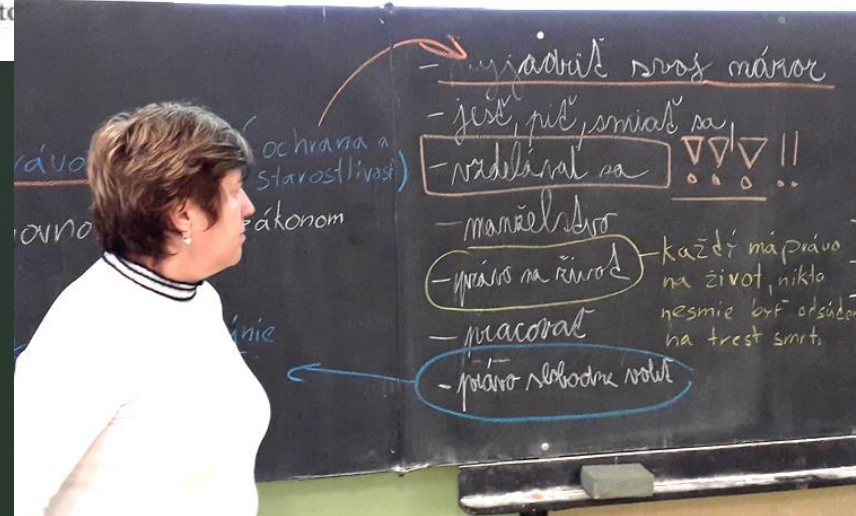 rávo
(ochrana a
starostlivosť)
ovno
zákonom
nie
- vyjadriť svoj názor
- jesť, piť, smiať sa,
- vzdelávať sa
!!! !!
- manželstvo
- právo na život
- každí má právo
na život, nikto
nesmie byť odsúden
na trest smrti
- pracovať
- právo slobodne voliť